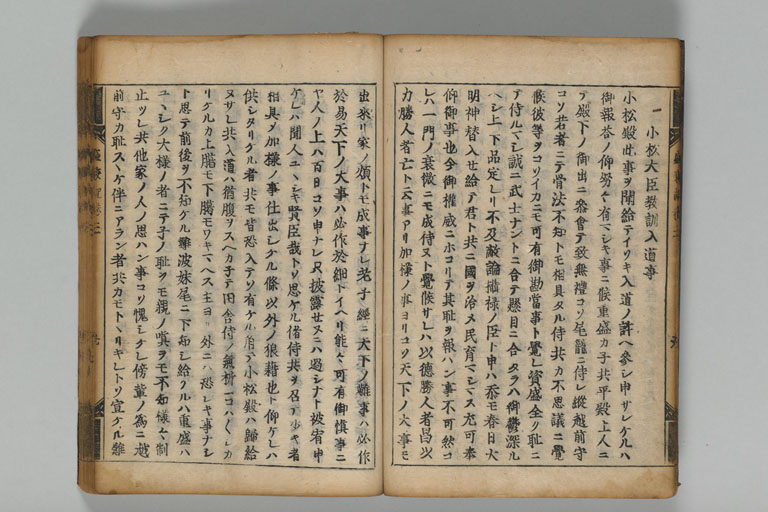 一 小松大臣教訓入道事
小松殿此事ヲ聞給テイソキ入道ノ許ヘ参シ申サレケルハ
御報答ノ仰努々有マシキ事ニ候重盛カ子共平殿上人ニ
テ殿下ノ御出ニ参會テ致無禮コソ尾籠ニ侍レ縦越前守
コソ若者ニテ骨法不知トモ相具タル侍共カ不思議ニ覺
候彼等ヲコソイカニモ可有御勘當事ト覺レ資盛全ク耻ニ
テ侍ルマシ誠ニ武士ナントニ合テ懸目ニ合タラハ御欝深ル
ヘシ上下品定レリ不及敵論攝禄ノ臣ト申ハ忝モ春日大
明神替入セ給テ君ト共ニ國ヲ治メ民育マシマス尤可奉
仰御事也今御權威ニホコリテ其耻ヲ報ハン事不可然コ
レハ一門ノ衰微ニモ成侍ヌト覺候サレハ以德勝人者昌以
力勝人者亡ト云事アリ加様ノ事ヨリコソ天下ノ大事モ
出來リ家ノ煩トモ成事ナレ老子經ニ天下ノ難事ハ必作
於易天下ノ大事ハ必作於細トイヘリ能々可有御慎事ニ
ヤ人ノ上ハ百日コソ申ナレ只披露セヌニハ過シナト被宥申
ケレハ聞人ユヽシキ賢臣哉トソ思ケル偖侍共ヲ召テ少々者
相具シ加様ノ事仕出シケル條以外ノ狼藉也ト仰ケレハ
供シタリケル者共モ皆恐入テソ有ケル角テ小松殿ハ歸給
ヌサレ共入道ハ猶腹ヲスヘカ子テ田舎侍ノ氣折ニコハクシカ
リケルカ上臈モ下臈モワキマヘス主ヨリ外ニハ恐シキ事ナシ
ト思テ前後ヲ不知ケル難波妹尾ニ下知シ給ケルハ重盛ハ
ユヽシク大様ノ者ニテ子ノ耻ヲモ親ノ嘆ヲモ不知様々制
止ツレ共他家ノ人ノ思ハン事コソ愧シケレ傍輩ノ爲ニ越
前守カ耻スヽケ伴ニアラン者共カモトヽリキレトソ宣ケル難